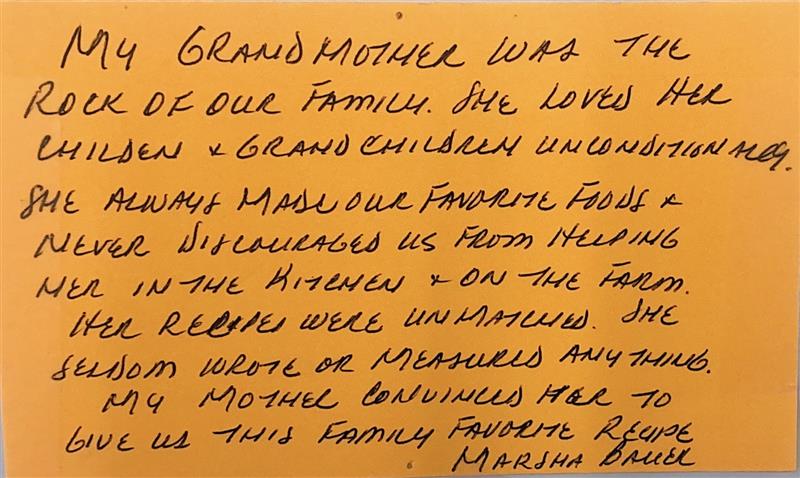 MY GRANDMOTHER WAS THE
ROCK OF OUR FAMILY. SHE LOVED HER
CHILDEN & GRANDCHILDREN UNCONDITIONALLY.
SHE ALWAYS MADE OUR FAVORITE FOODS &
NEVER DISCOURAGED US FROM HELPING
HER IN THE KITCHEN & ON THE FARM.
HER RECIPES WERE UNMATCHED. SHE
SELDOM WROTE OR MEASURED ANYTHING.
MY MOTHER CONVINCED HER TO
GIVE US THIS FAMILY FAVORITE RECIPE
MARSHA BAUER